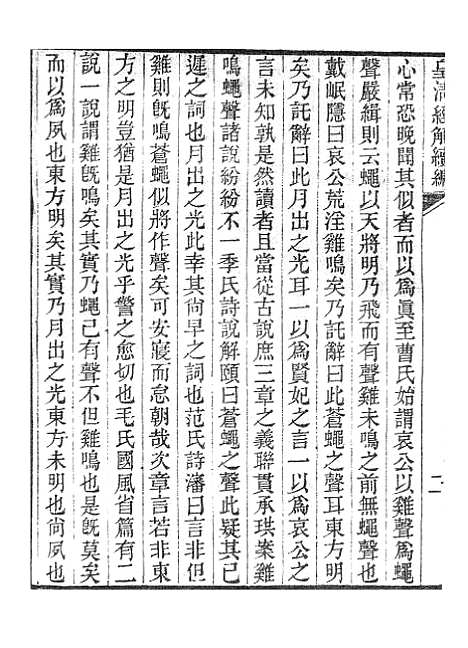 皇清經解續編
二
心常恐晚聞其似者而以爲眞至曹氏始謂哀公以雞聲爲蠅
聲嚴緝則云蠅以天將明乃飛而有聲雞未鳴之前無蠅聲也
戴岷隱曰哀公荒淫雞鳴矣乃託辭曰此蒼蠅之聲耳東方明
矣乃託辭曰此月出之光耳一以爲賢妃之言一以爲哀公之
言未知孰是然讀者且當從古說庶三章之義聯貫承珙案雞
鳴蠅聲諸說紛紛不一季氏詩說解頤曰蒼蠅之聲此疑其已
遲之詞也月出之光此幸其尚早之詞也范氏詩瀋曰言非但
雞則旣鳴蒼蠅似將作聲矣可安寢而怠朝哉次章言若非東
方之明豈猶是月出之光乎警之愈切也毛氏國風省篇有二
說一說謂雞旣鳴矣其實乃蠅已有聲不但雞鳴也是旣莫矣
而以爲夙也東方明矣其實乃月出之光東方未明也尚夙也